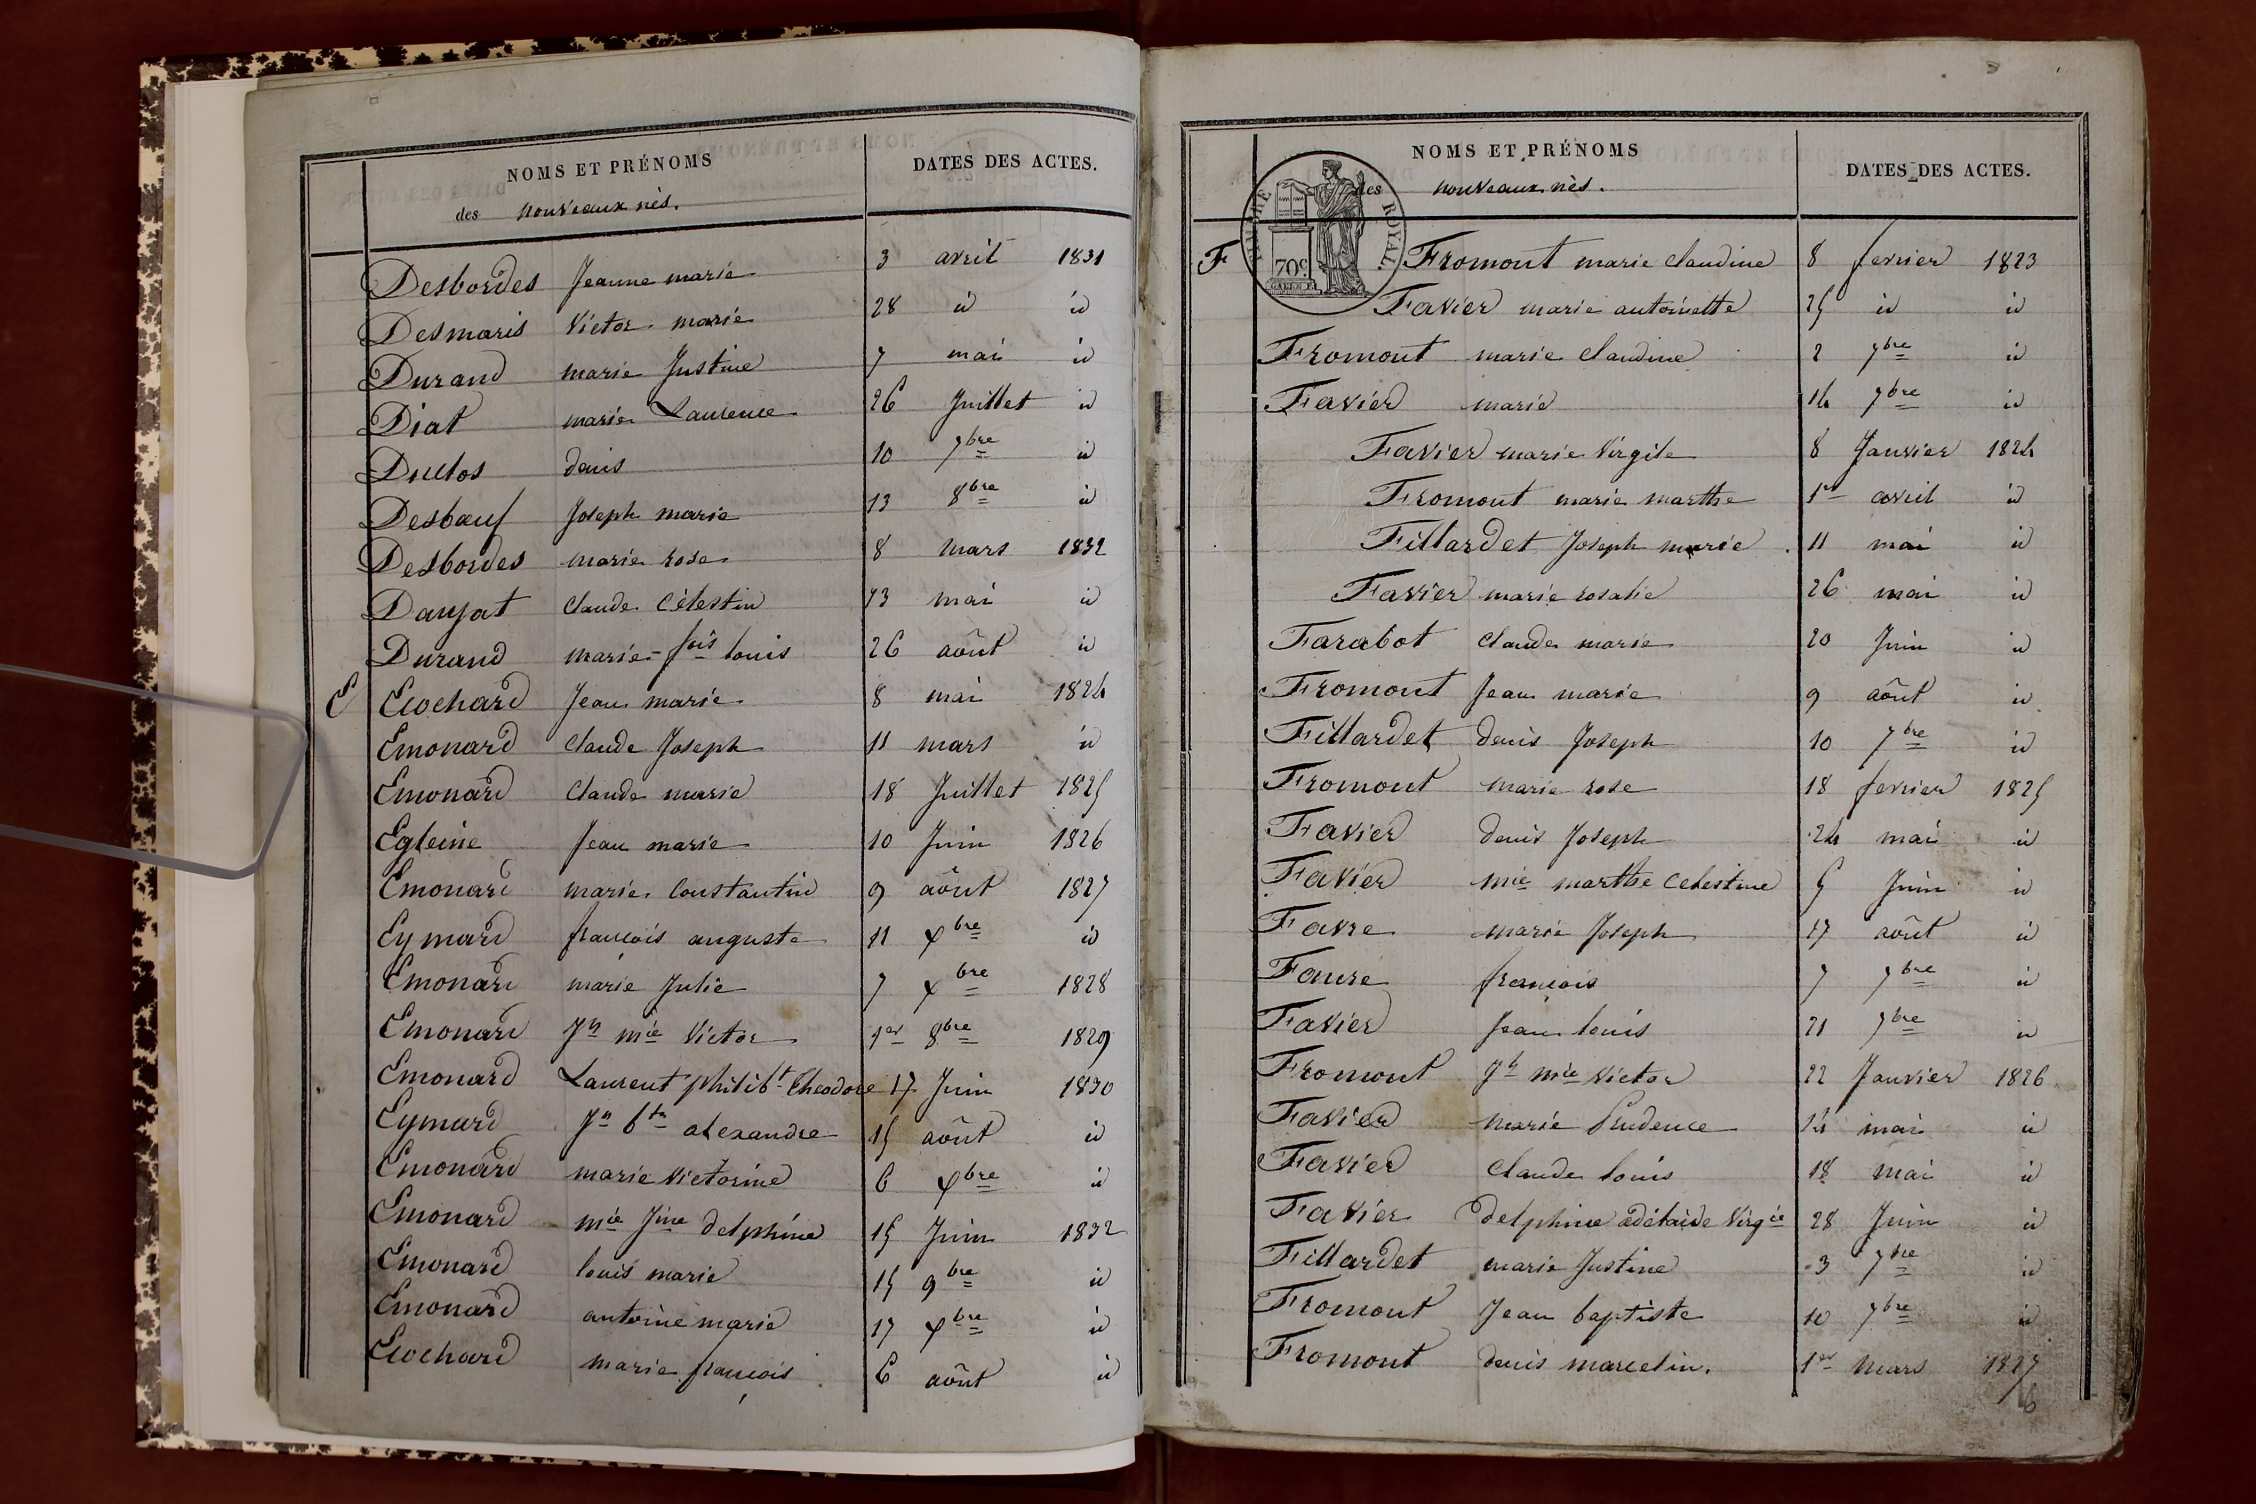 NOMS ET PRÉNOMS
DATES DES ACTES.
des nouveaux nès.
Desbordes Jeanne marie 3 avril 1831
Desmaris Victor marie 28 id id
Durand marie Justine 7 mai id
Diat marie Laurence 26 Juillet id
Duclos denis 10 7bre id
Desbœuf Joseph marie 13 8bre id
Desbordes marie rose 8 mars 1832
Daujat Claude Célestin 13 mai id
Durand marie-fois louis 26 août id
E Ecochard Jean marie 8 mai 1824
Emonard Claude Joseph 11 mars id
Emonard Claude marie 18 Juillet 1825
Egleine Jean marie 10 Juin 1826
Emonard marie Constantin 9 août 1827
Eymard françois auguste 11 Xbre id
Emonard marie Julie 7 Xbre 1828
Emonard Jh mie Victor 1er 8bre 1829
Emonard Laurent philibt Théodore 17 Juin 1830
Eymard Jn bte alexandre 15 août id
Emonard marie victorine 6 Xbre id
Emonard mie Jine delphine 15 Juin 1832
Emonard louis marie 15 9bre id
Emonard antoine marie 17 Xbre id
Ecochard marie françois 6 août id
NOMS ET PRÉNOMS
DATES DES ACTES.
des nouveaux nès.
TIMBRE ROYAL
70c
F Fromont marie claudine 8 fevrier 1823
Favier marie antoinette 25 id id
Fromont marie Claudine 2 7bre id
Favier marie 14 7bre id
Favier marie Virgile 8 Janvier 1824
Fromont marie marthe 1er avril id
Fillardet Joseph marie 11 mai id
Favier marie rosalie 26 mai id
Farabot Claude marie 20 Juin id
Fromont Jean marie 9 août id
Fillardet denis Joseph 10 7bre id
Fromont marie rose 18 fevrier 1825
Favier denis Joseph 24 mai id
Favier mie marthe Celestine 5 Juin id
Favre marie Joseph 17 août id
Faure françois 7 7bre id
Favier Jean louis 21 7bre id
Fromont Jh mie Victor 22 Janvier 1826
Favier marie Prudence 14 mai id
Favier Claude louis 18 mai id
Favier delphine adélaide Virgie 28 Juin id
Fillardet marie Justine 3 7bre id
Fromont Jean baptiste 10 7bre id
Fromont denis marcelin. 1er mars 1827
6